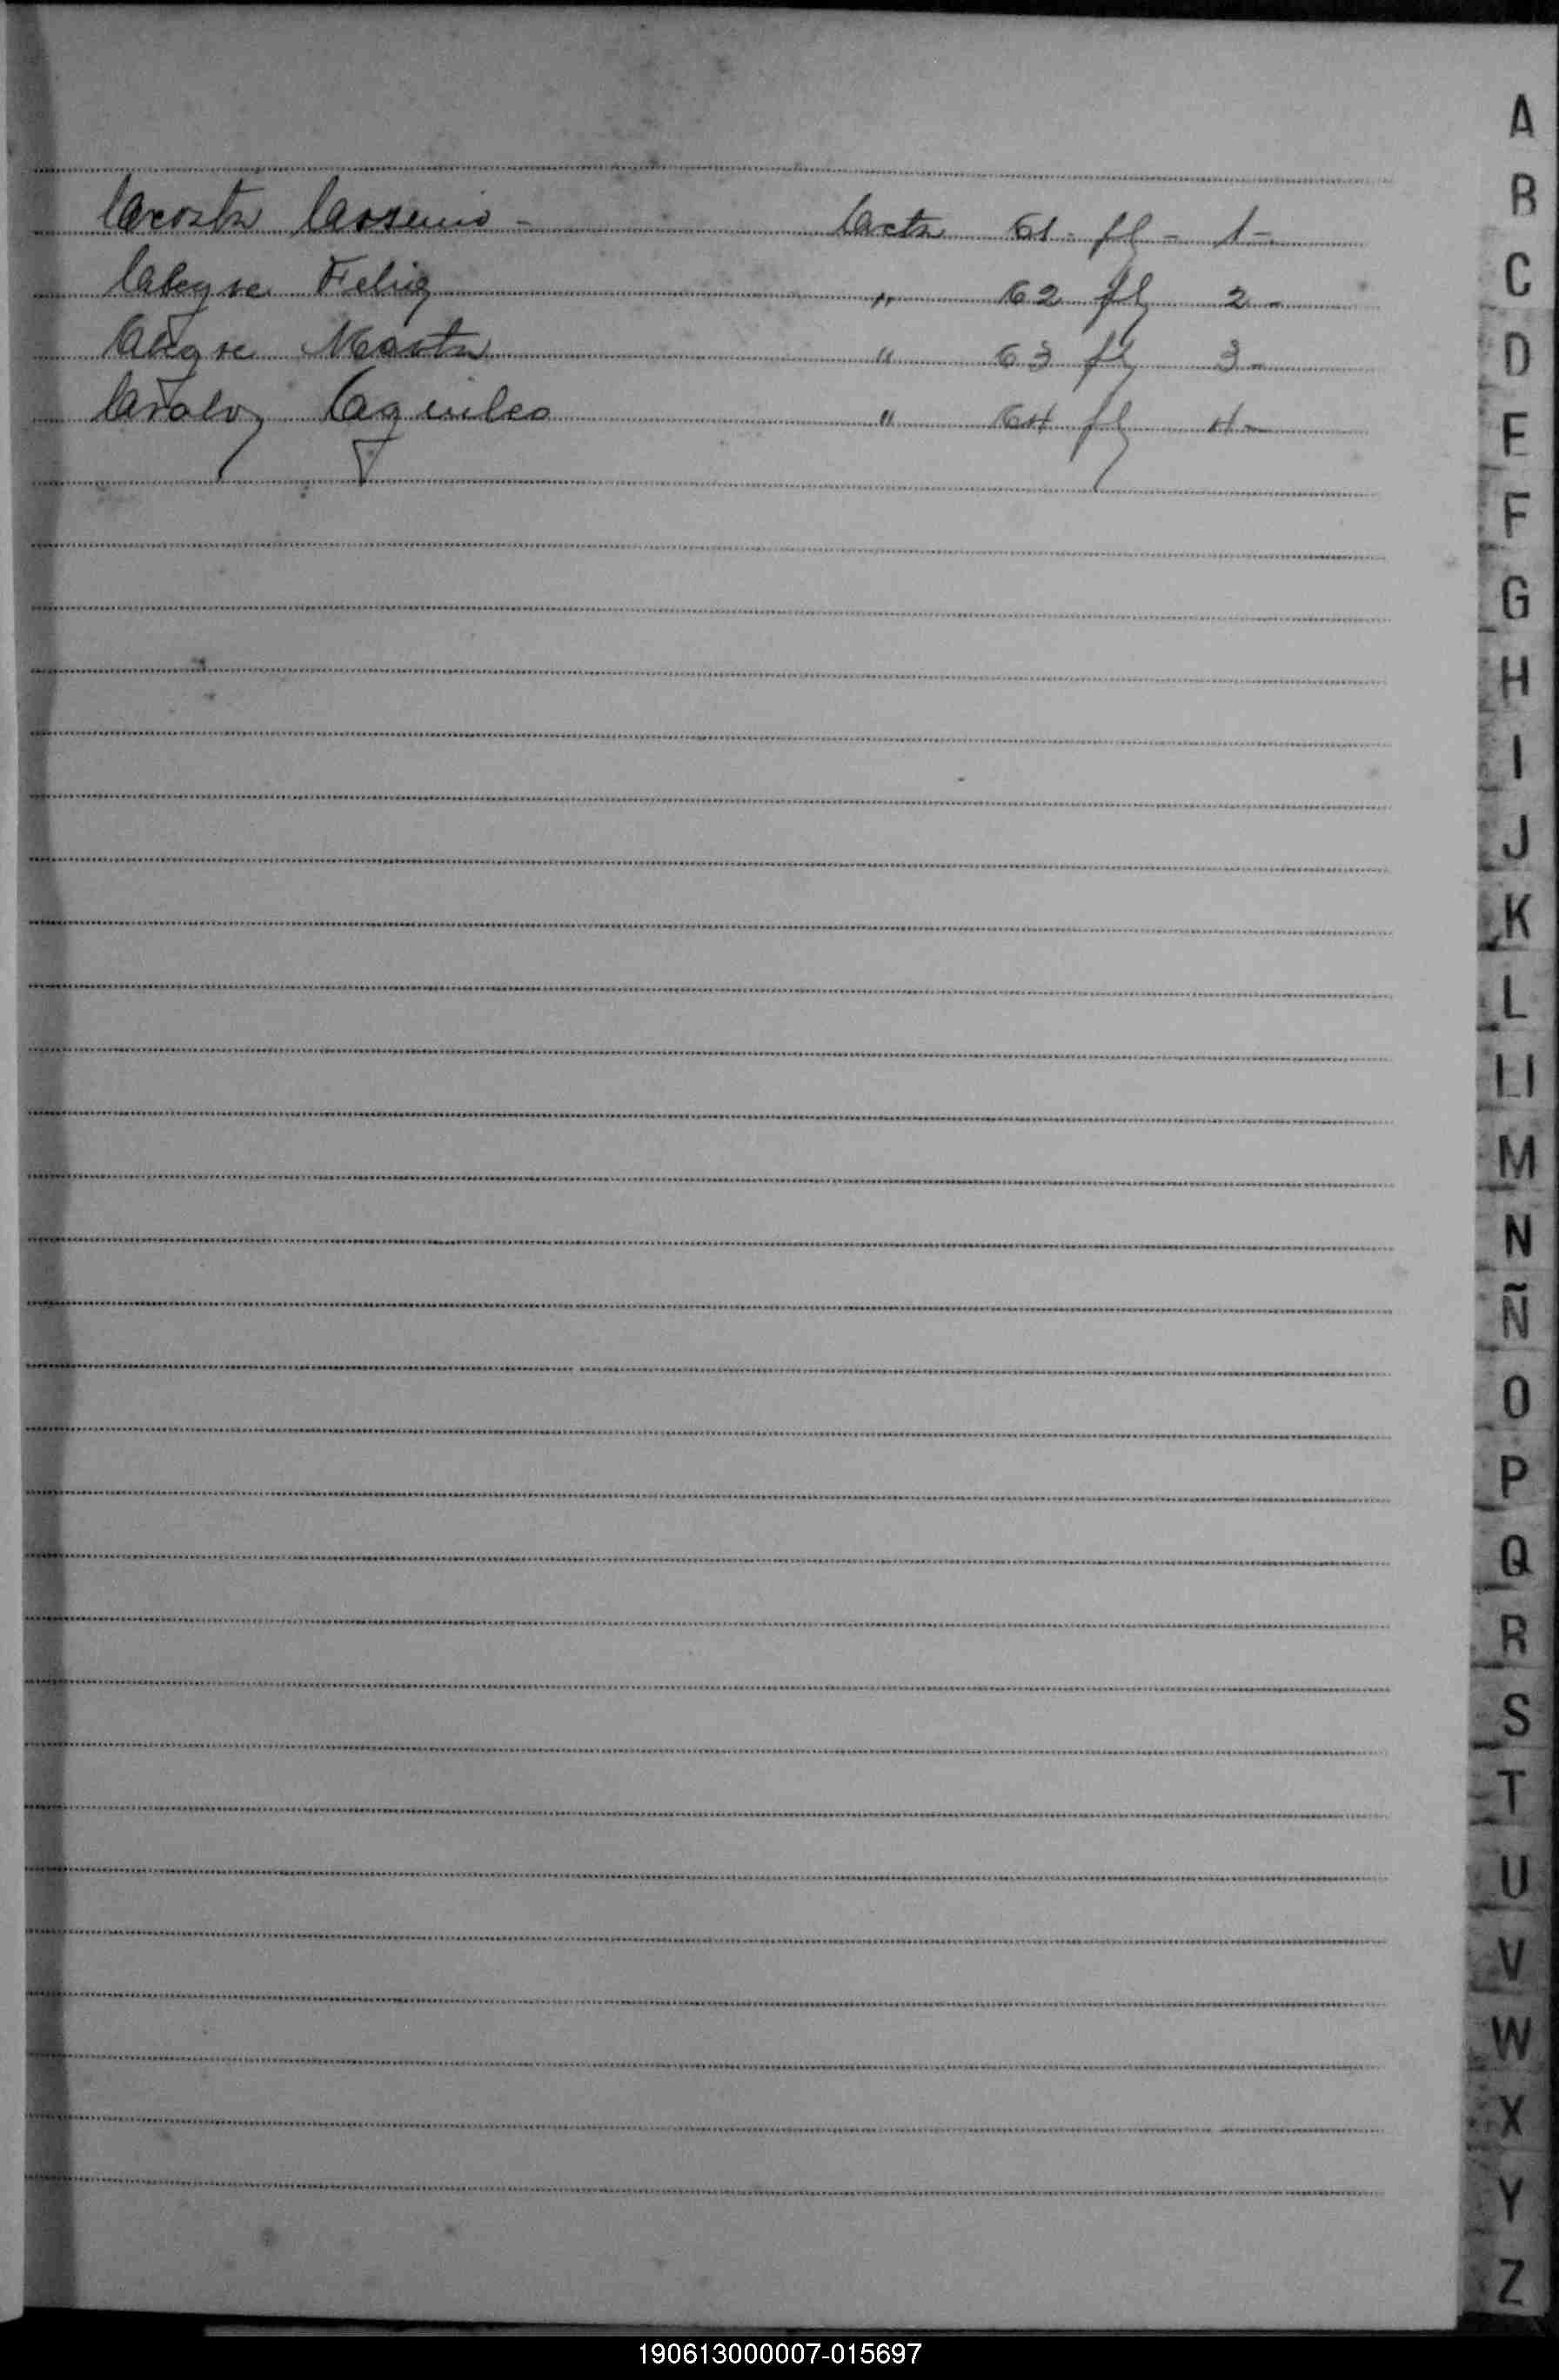 Acosta Arsenio - Acta 61 - fl - 1 -
Alegre Felix " 62 fl 2 -
Alegre Marta " 63 fl 3 -
Araloz Aquileo " 64 fl 4 -
A
B
C
D
E
F
G
H
I
J
K
L
Ll
M
N
Ñ
O
P
Q
R
S
T
U
V
W
X
Y
Z
190613000007-015697